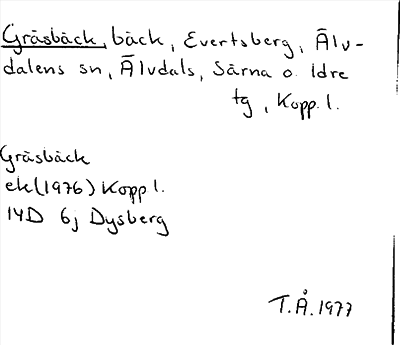 Gräsbäck, bäck, Evertsberg, Älv-
dalens sn, Älvdals, Särna o. Idre
tg, Kopp. l.
Gräsbäck
ek (1976) Kopp l.
14D 6j Dysberg
T.Å. 1977